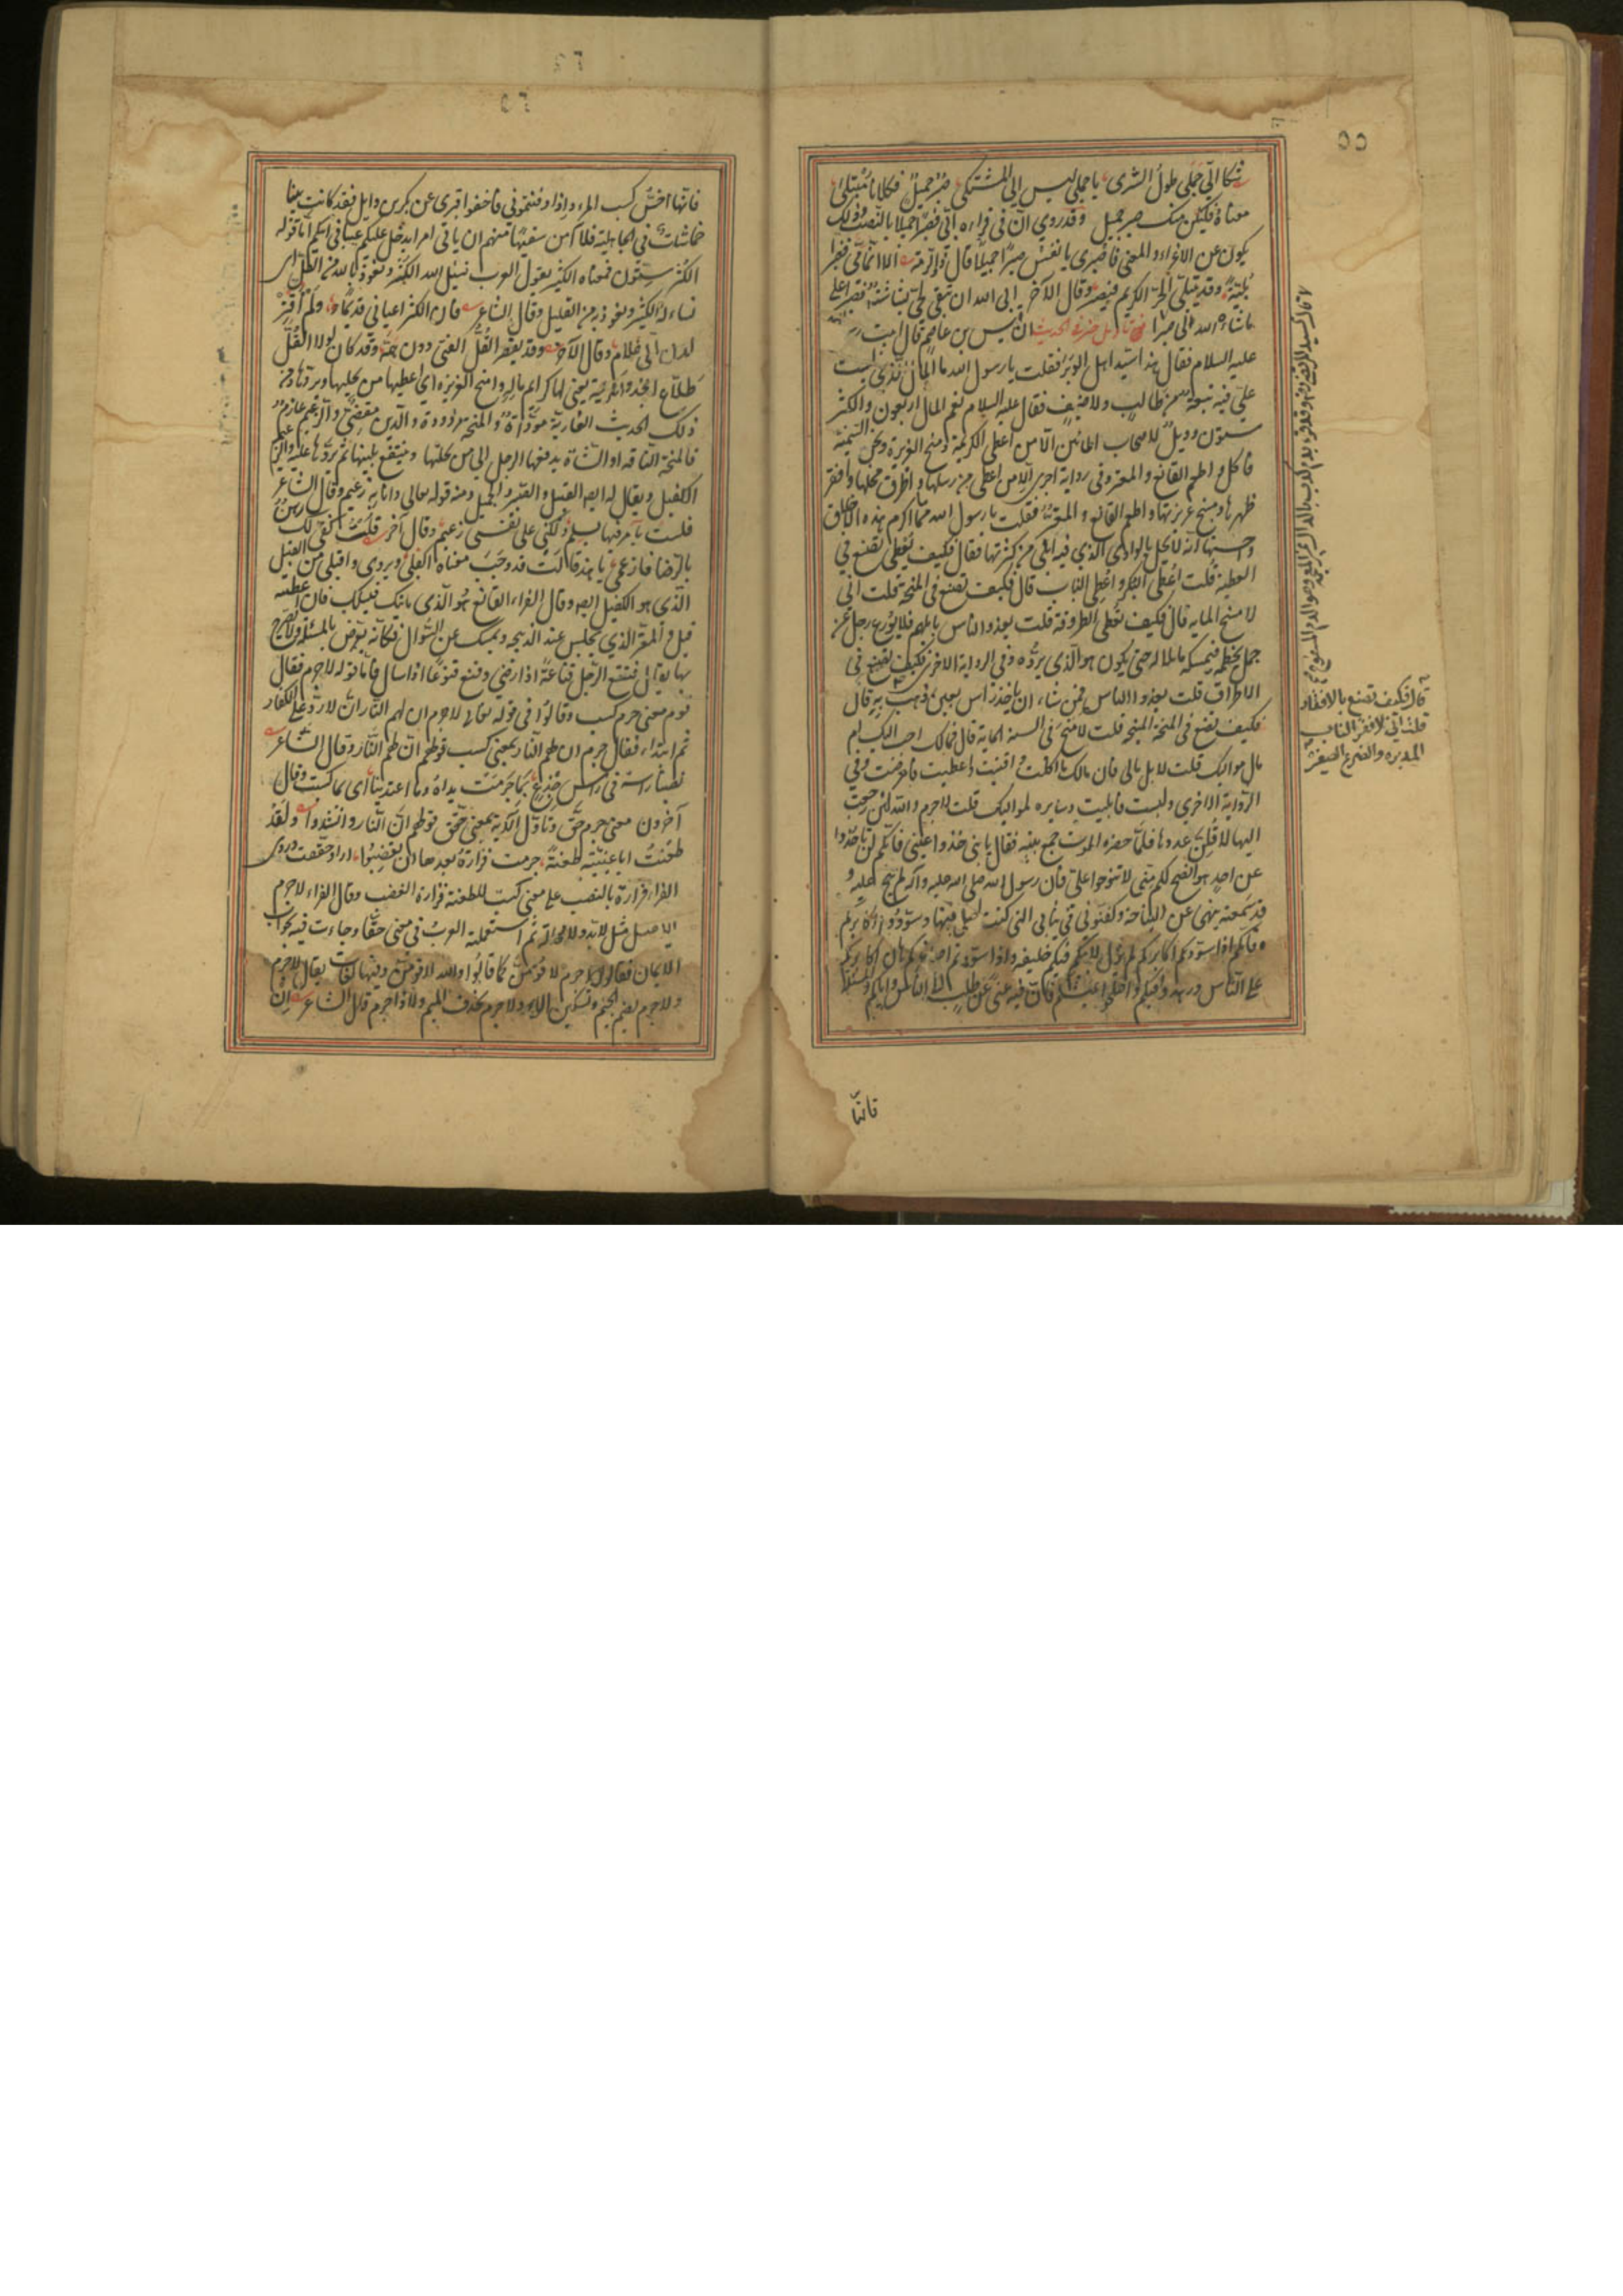 شكا الي جملي طول السرى يا جملي ليس الي المشتكى صبر جميل فكلانا مبتلى
معناه فليكن منك صبر جميل وقد روي ان في قراءة ابي فصبرا جميلا بالنصب وذلك
يكون على الاغراء والمعنى فاصبري يا نفس صبرا جميلا قال ذو الرمة الا انما مي فصبرا
بلية وقد يبتلى الحر الكريم فيصبر وقال الآخر ابى الله ان تبقى لحي بشاشة فصبرا على
ما شاء الله لي صبرا ان قيس بن عاصم قال اتيت
عليه السلام فقال هذا سيد اهل الوبر فقلت يا رسول الله ما المال الذي ليست
علي فيه تبعة من طالب ولا ضيف فقال عليه السلام نعم المال اربعون والكثر
ستون وويل لاصحاب المائين الا من اعطى الكريمة ومنح الغزيرة ونحر السمينة
فاكل واطعم القانع والمعتر وفي رواية اخرى الا من اعطى من رسلها واطرق فحلها وافقر
ظهرها ومنح غزيرتها واطعم القانع والمعتر فقلت يا رسول الله ما اكرم هذه الاخلاق
واحسنها انه لا يحل بالوادي الذي فيه ابلي من كثرتها فقال فكيف تصنع في
العطية قلت اعطي البكر واعطي الناب قال فكيف تصنع في المنحة قلت اني
لامنح المائة قال فكيف تعطي الطروقة قلت يغدو الناس بابلهم فلا يوزع رجل عن
جمل يخطمه فيمسكه ما بدا له حتى يكون هو الذي يرده وفي الرواية الاخرى فكيف تصنع في
الاطراق قلت يغدو الناس فمن شاء ان ياخذ براس بعير ذهب به قال
فكيف تصنع في المنحة قلت لامنح في السنة المائة قال فمالك احب اليك ام
مال مواليك قلت لا بل مالي قال فان مالك ما اكلت فافنيت واعطيت فامضيت وفي
الرواية الاخرى ولبست فابليت وسايره لمواليك قلت لا جرم والله لئن رجعت
اليها لاقلن عددها فلما حضره الموت جمع بنيه فقال يا بني خذوا عني فانكم لن تاخذوا
عن احد هو انصح لكم مني لا تنوحوا علي فان رسول الله صلى الله عليه وآله لم ينح عليه و
قد سمعته ينهى عن النياحة وكفنوني في ثيابي التي كنت اصلي فيها وسودوا اكابركم
فانكم اذا سودتم اكابركم لم يزل لابيكم فيكم خليفة واذا سودتم اصاغركم هان اكابركم
على الناس وزهدوا فيكم واصلحوا عيشكم فان فيه غنى عن طلب الى الناس واياكم والمسئلة
فانها
قال فكيف تصنع بالافقار
قلت اني لافقر الناب
المدبرة والضرع الصغير
٥٥
٥٦
فانها اخس كسب المرء واذا دفنتموني فاخفوا قبري عن بكر بن وايل فقد كانت بيننا
خماشات في الجاهلية فلا آمن سفيها منهم ان ياتي امرا يدخل عليكم عيبا في ابيكم اما قوله
الكثر ستون فمعناه الكثير يقول العرب نسئل الله الكثر ونعوذ بالله من القل اي
نساله الكثير ونعوذ به من القليل وقال الشاعر فان الكثر اعياني قديما ولم اقتر
لدن اني غلام وقال الآخر وقد يقصر القل الفتى دون همه وقد كان لولا القل
طلاع انجد والكريمة يعني بها كرايم ماله وامنح الغزيرة اي اعطيها من يحلبها ويردها ومن
ذلك الحديث العارية مؤداة والمنحة مردودة والدين مقضي والزعيم غارم
فالمنحة الناقة او الشاة يدفعها الرجل الى من يحلبها وينتفع بلبنها ثم يردها عليه والزعيم
الكفيل ويقال له ايضا القبيل والصبير والحميل ومنه قوله تعالى وانا به زعيم وقال الشاعر
فلست بآمر فيها بسلم ولكني على نفسي زعيم وقال آخر قلت كفي لك رهن
بالرضا فازعمي يا هند قالت قد وجب معناه اكفلي ويروى واقبلي من القبيل
الذي هو الكفيل ايضا وقال الفراء القانع هو الذي ياتيك فيسئلك فان اعطيته
قبل والمعتر الذي يجلس عند الذبيحة ويمسك عن السؤال فكانه يعرض بالمسئلة ولا يصرح
بها يقال قنع الرجل قناعة اذا رضي وقنع قنوعا اذا سال فاما قوله لا جرم فقال
قوم معنى جرم كسب وقالوا في قوله تعالى لا جرم ان لهم النار ان لا رد على الكفار
ثم ابتدا، فقال جرم ان لهم النار بمعنى كسب قولهم ان لهم النار وقال الشاعر
نصبنا راسه في راس جذع بما جرمت يداه وما اعتدينا اي بما كسبت وقال
آخرون معنى جرم حق وتاول الآية بمعنى حقق قولهم ان النار وانشدوا ولقد
طعنت ابا عيينة طعنة جرمت فزارة بعدها ان يغضبوا اراد حققت وروى
الفراء فزارة بالنصب على معنى كسبت الطعنة فزارة الغضب وقال الفراء لا جرم
الاصل مثل لا بد ولا محالة ثم استعملته العرب في معنى حقا وجاءت فيه بجواب
الايمان فقالوا لا جرم لاقومن كما قالوا والله لاقومن وفيها لغات يقال لا جرم
ولا جرم بضم الجيم وتسكين الراء ولا جر بحذف الميم ولا ذا جرم قال الشاعر ان